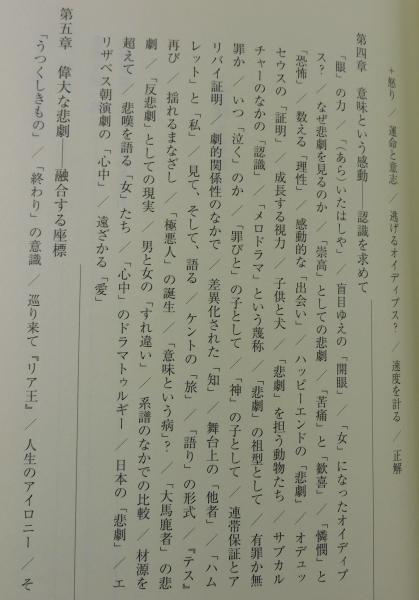 +怒り／運命と意志／逃げるオイディプス?／速度を計る／正解
第四章 意味という感動――認識を求めて
「眼」の力／「(あら)いたはしや」／盲目ゆえの「開眼」／「女」になったオイディプ
ス?／なぜ悲劇を見るのか／「崇高」としての悲劇／「苦痛」と「歓喜」／「憐憫」と
「恐怖」／数える「理性」／感動的な「出会い」／ハッピーエンドの「悲劇」／オデュッ
セウスの「証明」／成長する視力／子供と犬／「悲劇」を担う動物たち／サブカル
チャーのなかの「認識」／「メロドラマ」という蔑称／「悲劇」の祖型として／有罪か無
罪か／いつ「泣く」のか／「罪びと」の子として／「神」の子として／連帯保証とア
リバイ証明／劇的関係性のなかで／差異化された「知」／舞台上の「他者」／「ハム
レット」と「私」／見て、そして、語る／ケントの「旅」／「語り」の形式／『テス』
再び／揺れるまなざし／「極悪人」の誕生／「意味という病」?／「大馬鹿者」の悲
劇／「反悲劇」としての現実／男と女の「すれ違い」／系譜のなかでの比較／材源を
超えて／悲嘆を語る「女」たち／「心中」のドラマトゥルギー／日本の「悲劇」／エ
リザベス朝演劇の「心中」／遠ざかる「愛」
第五章 偉大な悲劇――融合する座標
「うつくしきもの」／「終わり」の意識／巡り来て『リア王』／人生のアイロニー／そ